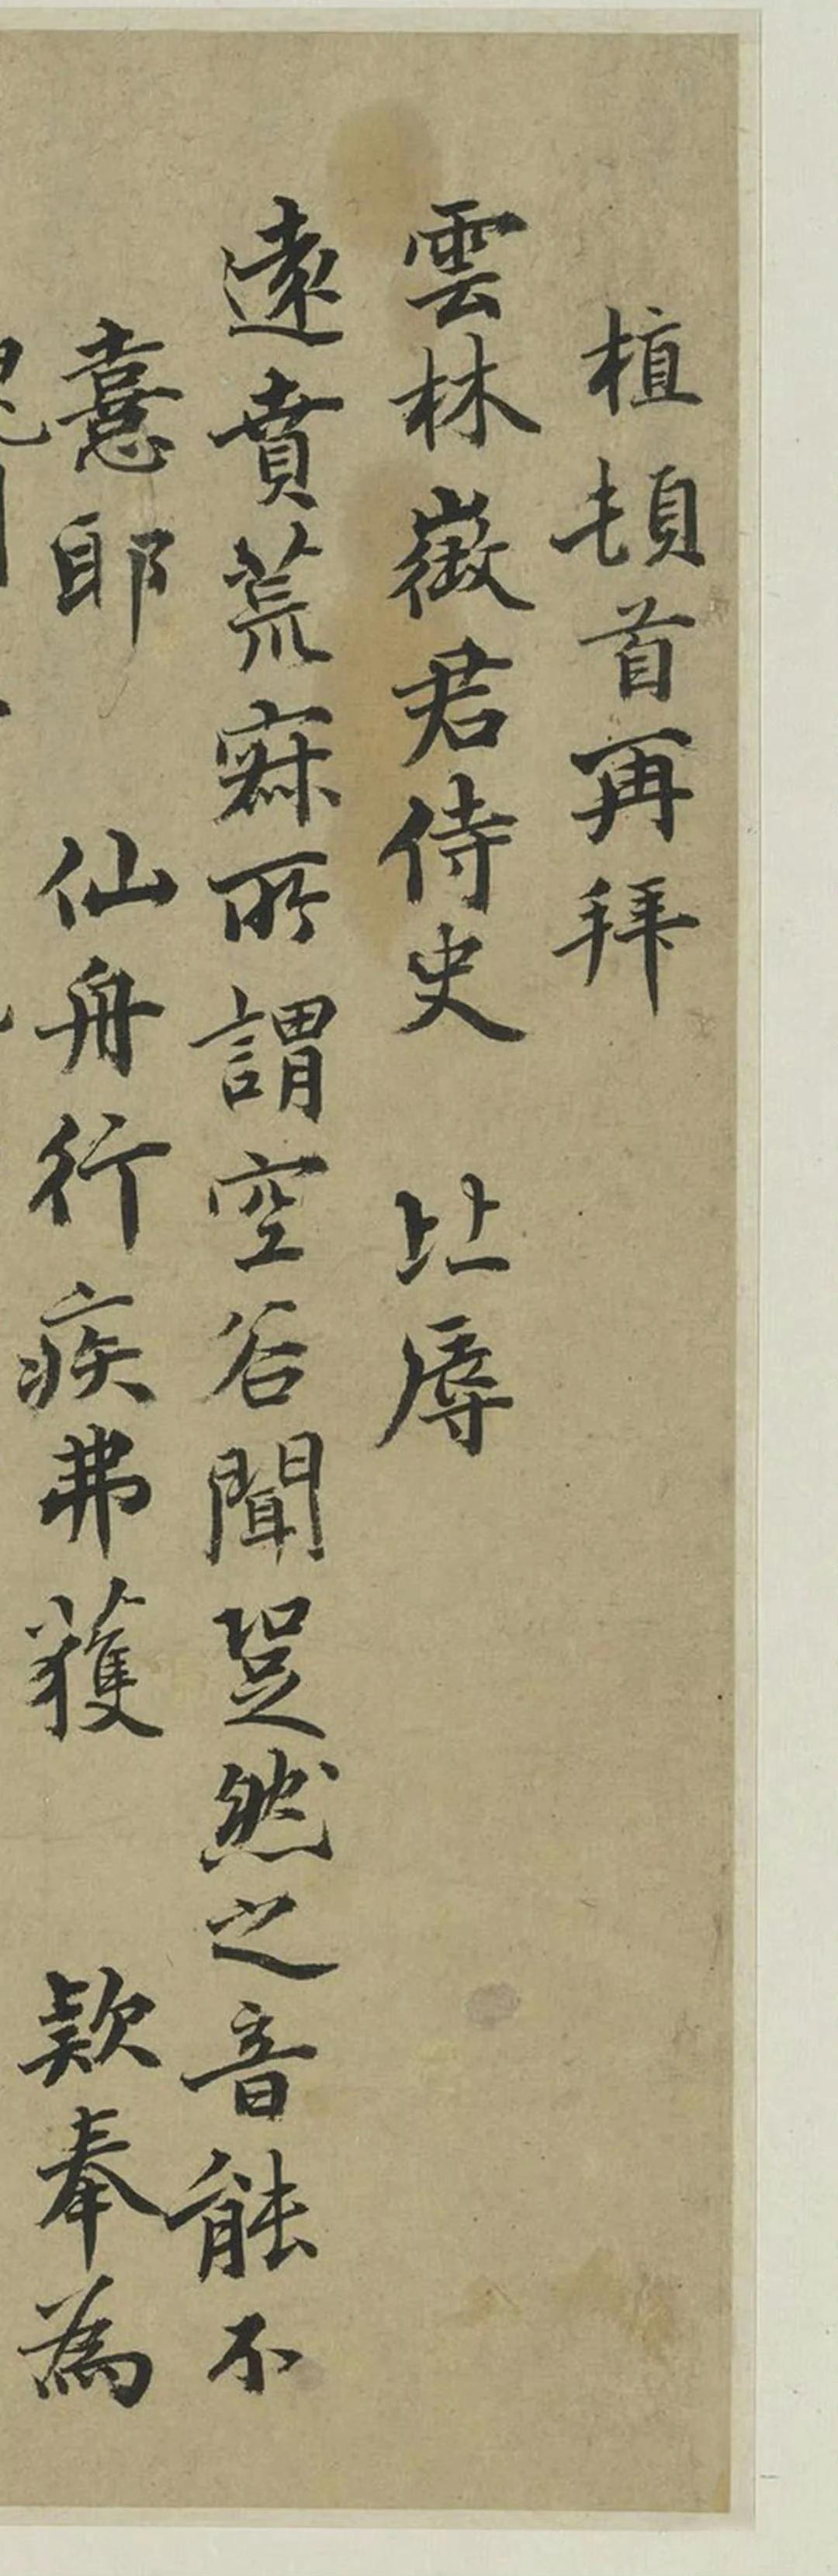 植頓首再拜
雲林徵君侍史 比辱
遠賁荒寂所謂空谷聞跫然之音能不
憙耶 仙舟行疾弗獲 款奉為